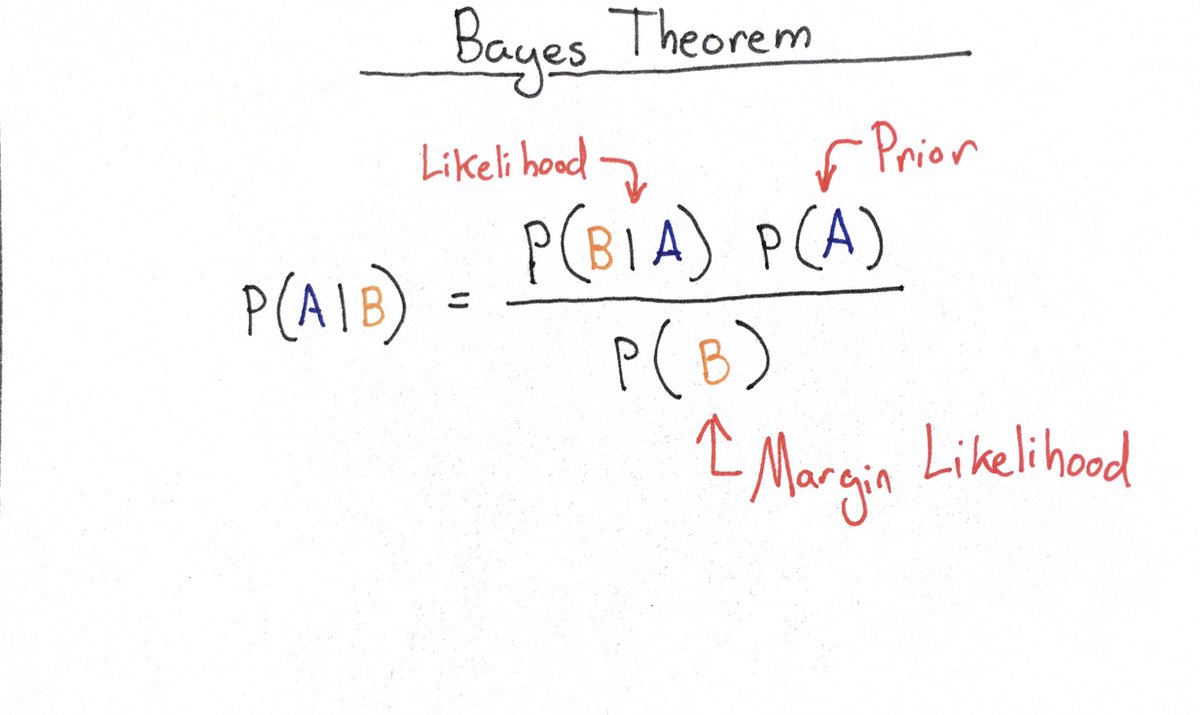 Bayes Theorem
Likelihood Prior
P(B|A) P(A)
P(A|B) =
P(B)
Margin Likelihood